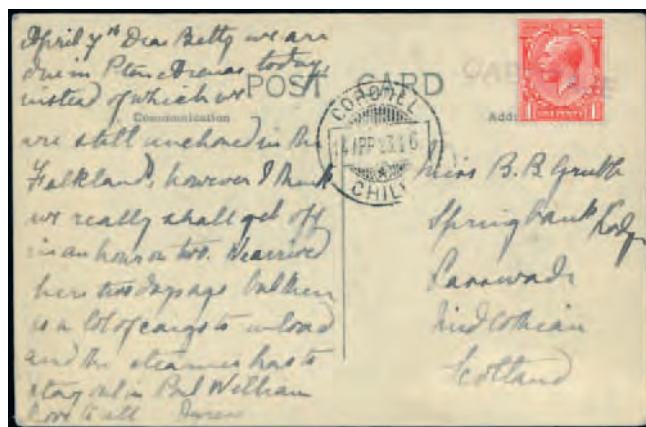 April 7th Dear Betty we are
due in Ptan Arenas today
instead of which we
are still anchored in the
Falklands, however I think
we really shall get off
in an hour or two. We arrived
here two days ago but there
is a lot of cargo to unload
and the steamer has to
stay out in Port William
love to all
POST CARD
Communication
CORONEL
CHILE
ONE PENNY
Miss B. B.
Springbank Lodge
Midlothian
Scotland